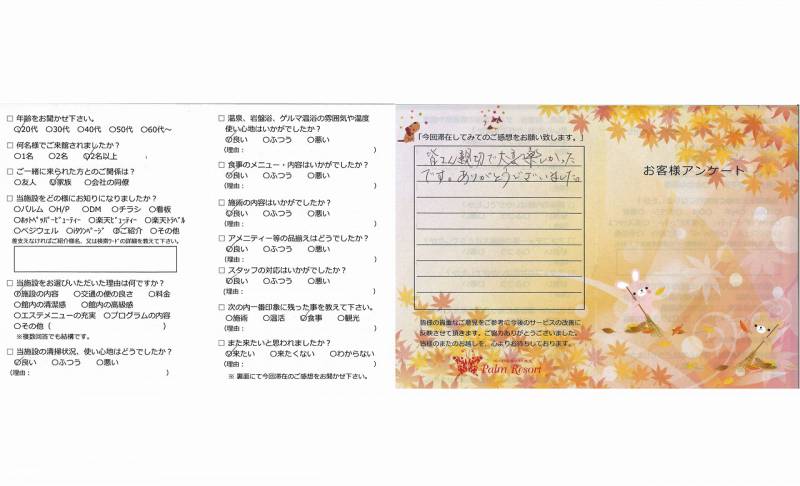 □ 年齢をお聞かせ下さい。
○20代 ○30代 ○40代 ○50代 ○60代～
□ 何名様でご来館されましたか？
○1名 ○2名 ○2名以上
□ ご一緒に来られた方とのご関係は？
○友人 ○家族 ○会社の同僚
□ 当施設をどの様にお知りになりましたか？
○パルム ○H/P ○DM ○チラシ ○看板
○ﾎｯﾄﾍﾟｯﾊﾟｰﾋﾞｭｰﾃｨｰ ○楽天ﾋﾞｭｰﾃｨ ○楽天ﾄﾗﾍﾞﾙ
○ベジウェル ○ｲﾀｳﾝﾍﾟｰｼﾞ ○ご紹介 ○その他
差支えなければご紹介様名、又は検索ﾜｰﾄﾞの詳細を教えて下さい。
□ 当施設をお選びいただいた理由は何ですか？
○施設の内容 ○交通の便の良さ ○料金
○館内の清潔感 ○館内の高級感
○エステメニューの充実 ○プログラムの内容
○その他（ ）
※複数回答でも結構です。
□ 当施設の清掃状況、使い心地はどうでしたか？
○良い ○ふつう ○悪い
(理由： )
□ 温泉、岩盤浴、ゲルマ温浴の雰囲気や温度
使い心地はいかがでしたか？
○良い ○ふつう ○悪い
(理由： )
□ 食事のメニュー・内容はいかがでしたか？
○良い ○ふつう ○悪い
(理由： )
□ 施術の内容はいかがでしたか？
○良い ○ふつう ○悪い
(理由： )
□ アメニティー等の品揃えはどうでしたか？
○良い ○ふつう ○悪い
(理由： )
□ スタッフの対応はいかがでしたか？
○良い ○ふつう ○悪い
(理由： )
□ 次の内一番印象に残った事を教えて下さい。
○施術 ○温活 ○食事 ○観光
(理由： )
□ また来たいと思われましたか？
○来たい ○来たくない ○わからない
(理由： )
※ 裏面にて今回滞在のご感想をお聞かせ下さい。
「今回滞在してみてのご感想をお願い致します。」
皆さん親切で大変楽しかった
です。ありがとうございました。
皆様の貴重なご意見をご参考に今後のサービスの改善に
反映させて頂きます。ご協力ありがとうございました。
皆様のまたのお越しを、心よりお待ちしております。
Palm Resort
お客様アンケート